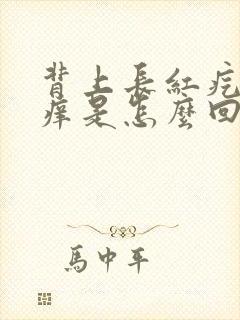 背上長紅疙
癢是怎麼回
馬中平